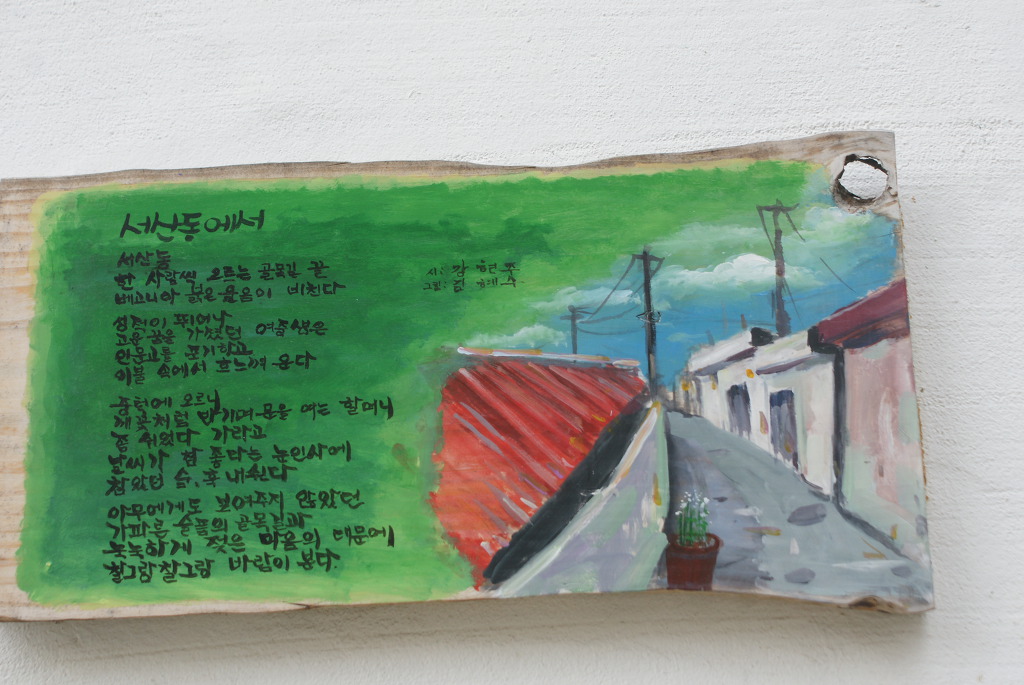 서산동에서
서산동
한 사람씩 오르는 골목길 끝
베고니아 붉은 울음이 비친다
시:
그림: 김
성적이 뛰어나
고운 꿈을 가졌던 여중생은
인문고를 포기하고
이불 속에서 흐느껴 운다
중턱에 오르니
깨꽃처럼 반기며 문을 여는 할머니
좀 쉬었다 가라고
날씨가 참 좋다는 눈인사에
참았던 숨, 후 내쉰다
아무에게도 보여주지 않았던
가파른 슬픔의 골목길과
눅눅하게 젖은 마음의 대문에
찰그랑찰그랑 바람이 분다.